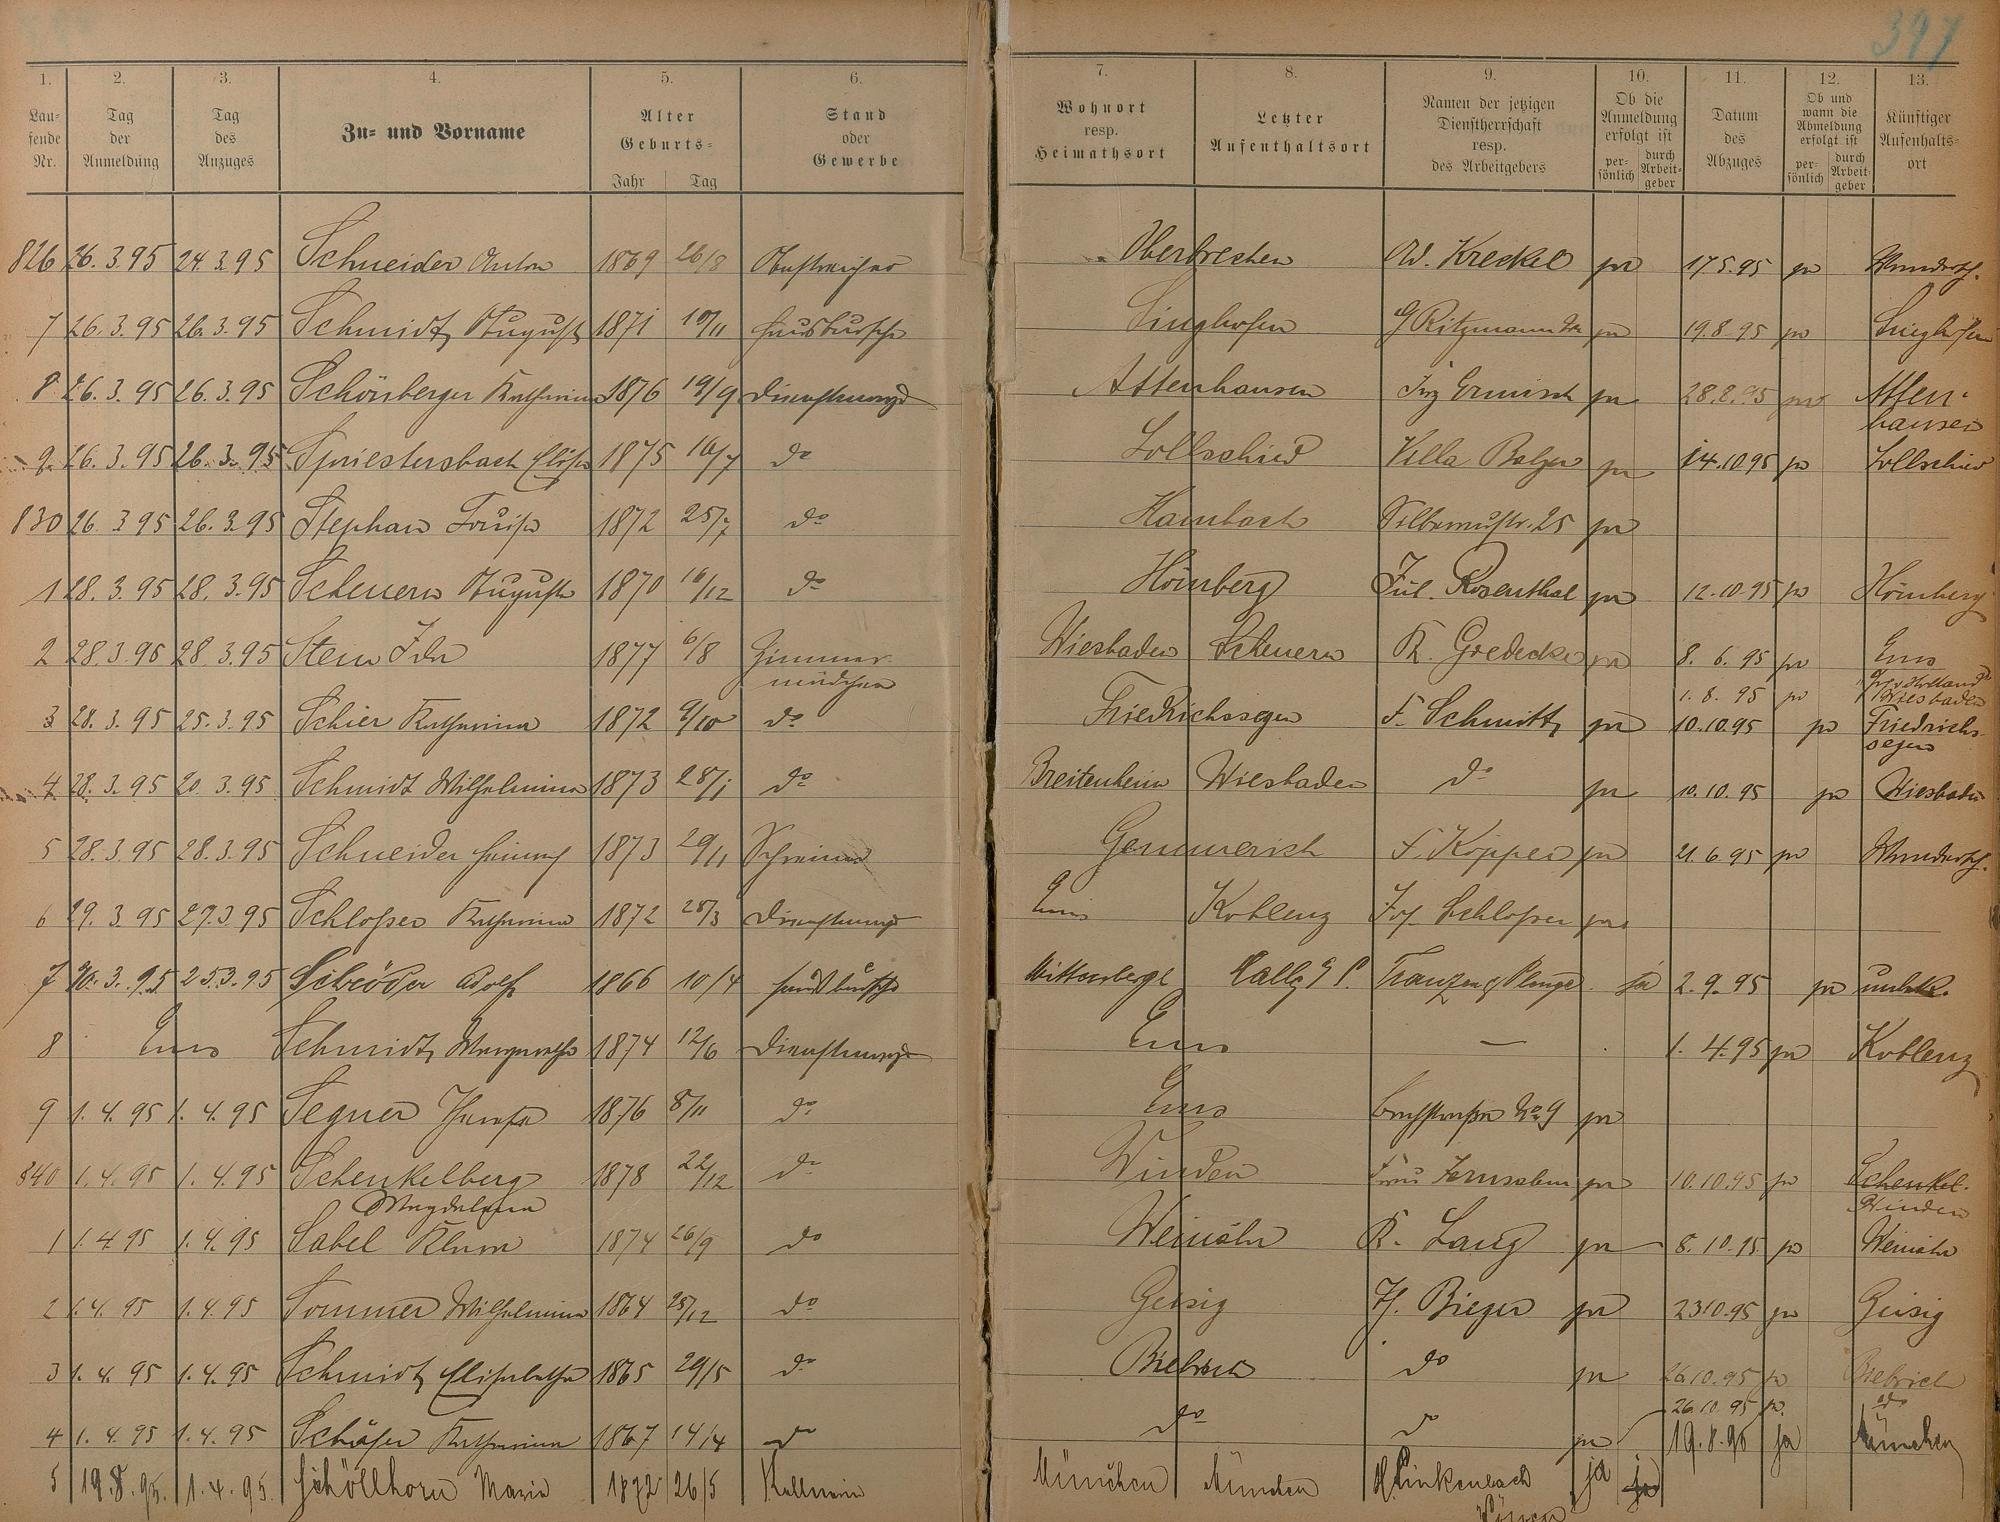 397
1. 2. 3. 4. 5. 6. 7. 8. 9. 10. 11. 12. 13.
Lau-
fende
Nr.
Tag
der
Anmeldung
Tag
des
Anzuges
Zu- und Vorname
Alter
Geburts-
Jahr Tag
Stand
oder
Gewerbe
Wohnort
resp.
Heimathsort
Letzter
Aufenthaltsort
Namen der jetzigen
Dienstherrschaft
resp.
des Arbeitgebers
Ob die
Anmeldung
erfolgt ist
per-
sönlich
durch
Arbeit-
geber
Datum
des
Abzuges
Ob und
wann die
Abmeldung
erfolgt ist
per-
sönlich
durch
Arbeit-
geber
Künftiger
Aufenthalts-
ort
826 26.3.95 24.3.95 Schneider Anton 1869 26/8 Anstreicher Oberbrechen Ad. Kreckel ja 17.5.95 ja Wandersch.
7 26.3.95 26.3.95 Schmidt August 1871 10/11 Hausbursche Singhofen Ritzmann ja 19.8.95 ja Singhofen
8 26.3.95 26.3.95 Schönberger Katharina 1876 19/9 Dienstmagd Attenhausen Ermisch ja 28.8.95 ja Atten-
hausen
9 26.3.95 26.3.95 Spriestersbach Elise 1875 16/7 do Lollschied Villa Balzer ja 14.10.95 ja Lollschied
830 26.3.95 26.3.95 Stephan Louise 1872 25/7 do Hambach Silberaustr. 25 ja
1 28.3.95 28.3.95 Scheuern Auguste 1870 16/12 do Hömberg Jul. Rosenthal ja 12.10.95 ja Hömberg
2 28.3.95 28.3.95 Stein Ida 1877 6/8 Zimmer-
mädchen Wiesbaden Scheuern R. Gredecke ja 8.6.95 ja Ems
1.8.95 ja Wiesbaden
3 28.3.95 25.3.95 Schier Katharina 1872 9/10 do Friedrichssegen F. Schmitt ja 10.10.95 ja Friedrichs-
segen
4 28.3.95 20.3.95 Schmidt Wilhelmina 1873 28/1 do Breitenheim Wiesbaden do ja 10.10.95 ja Wiesbaden
5 28.3.95 28.3.95 Schneider Heinrich 1873 29/11 Schreiner Gemmerich F. Köpper ja 21.6.95 ja Wandersch.
6 29.3.95 27.3.95 Schloßer Katharina 1872 28/3 Dienstmagd Ems Koblenz Jos. Schloßer ja
7 30.3.95 25.3.95 Schröder Adolf 1866 10/4 Hausbursche Wittenberge Halle a/S. ja 2.9.95 ja unbek.
8 Ems Schmidt Margarethe 1874 12/6 Dienstmagd Ems — 1.4.95 ja Koblenz
9 1.4.95 1.4.95 Segner Therese 1876 8/11 do Ems No 9 ja
840 1.4.95 1.4.95 Schenkelberg
Magdalena 1878 22/12 do Winden Frau Jerusalem ja 10.10.95 ja Schenkel-
Winden
1 1.4.95 1.4.95 Sabel Klara 1874 26/9 do Weinähr K. Lang ja 8.10.95 ja Weinähr
2 1.4.95 1.4.95 Sommer Wilhelmina 1864 25/12 do Geisig H. Bieger ja 23.10.95 ja Geisig
3 1.4.95 1.4.95 Schmidt Elisabetha 1865 29/5 do Biebrich do ja 26.10.95 ja Biebrich
4 1.4.95 1.4.95 Schäfer Katharina 1867 14/4 do do do ja 26.10.95 ja do
5 19.8.95. 1.4.95. Schöllhorn Maria 1872 26/5 Kellnerin München München H. Linkenbach ja ja 19.8.96 ja München